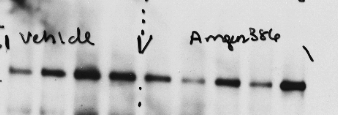 Vehicle Amgen386